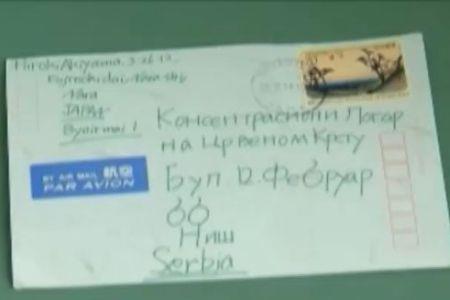 Hiroki Akiyama. 3-26-12
Nara
JAPAN
By air mail
BY AIR MAIL 航空
PAR AVION
Концентрасиони Логор
на Црвеном Крсту
Бул. 12. Фебруар
66
Ниш
Serbia